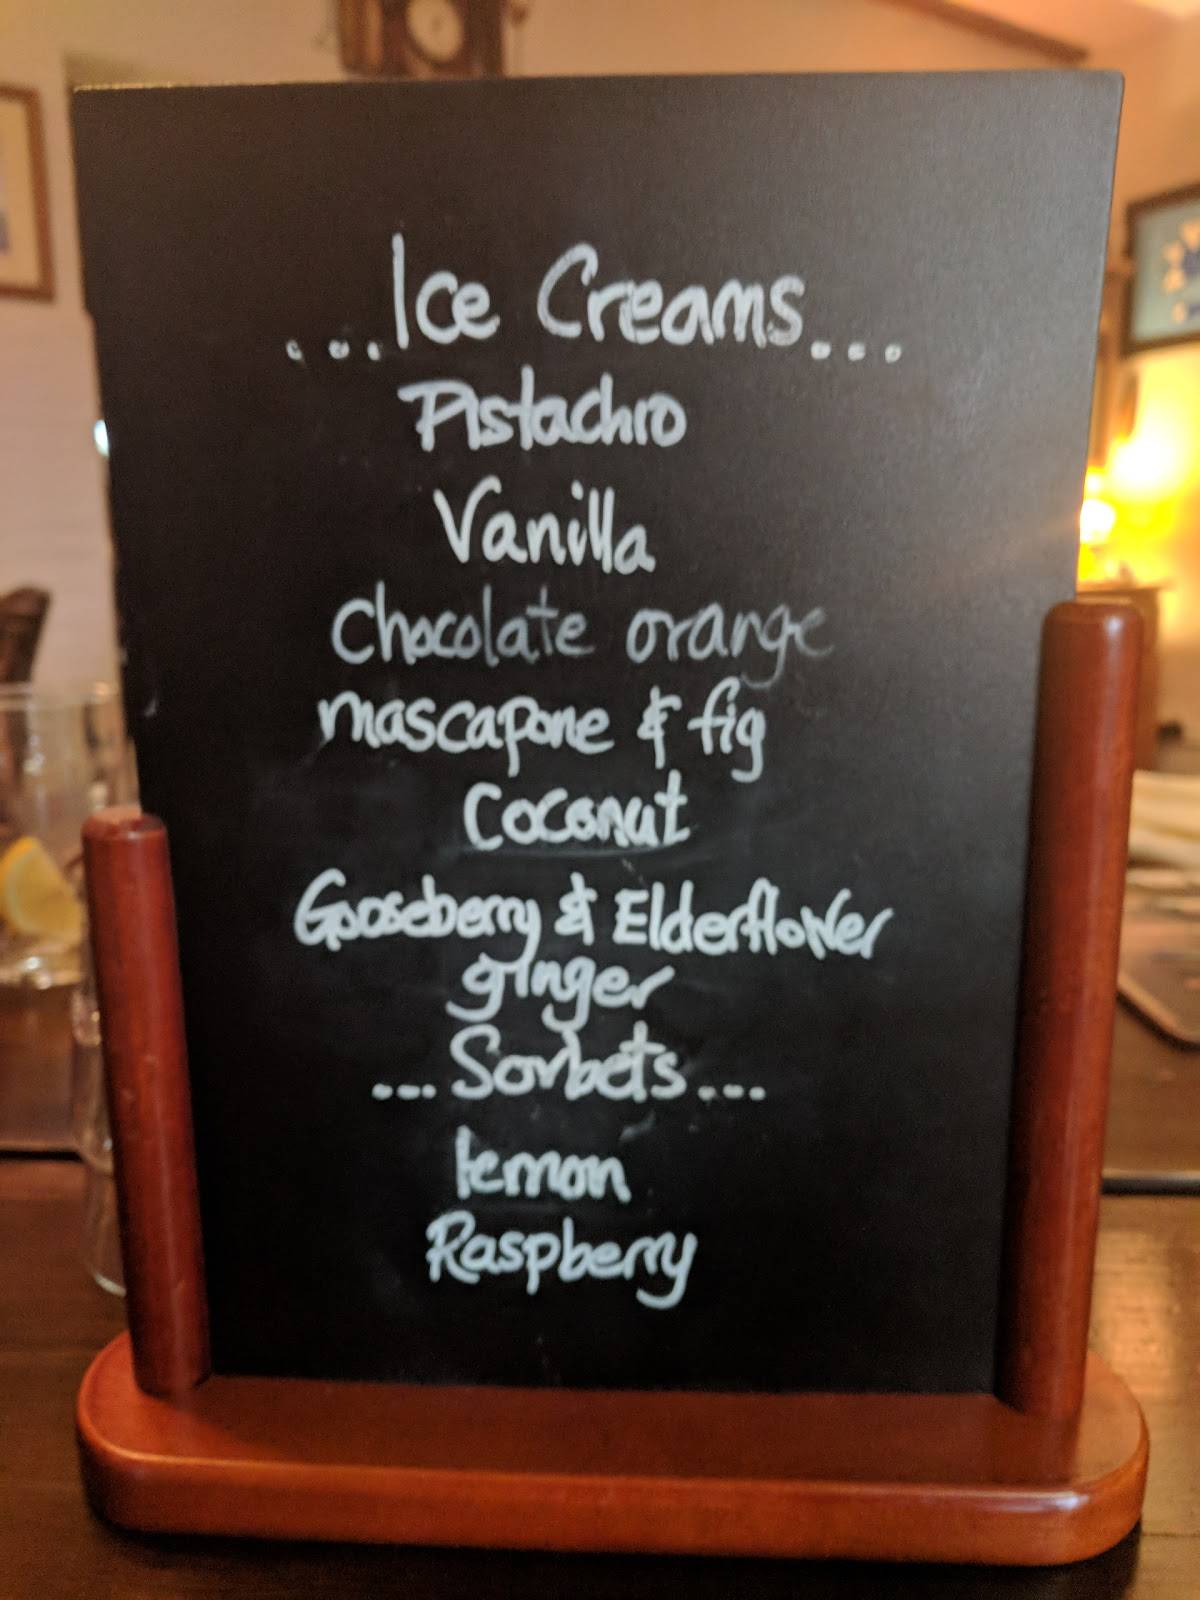 ...Ice Creams...
Pistachio
Vanilla
Chocolate orange
mascapone & fig
Coconut
Gooseberry & Elderflower
ginger
...Sorbets...
lemon
Raspberry